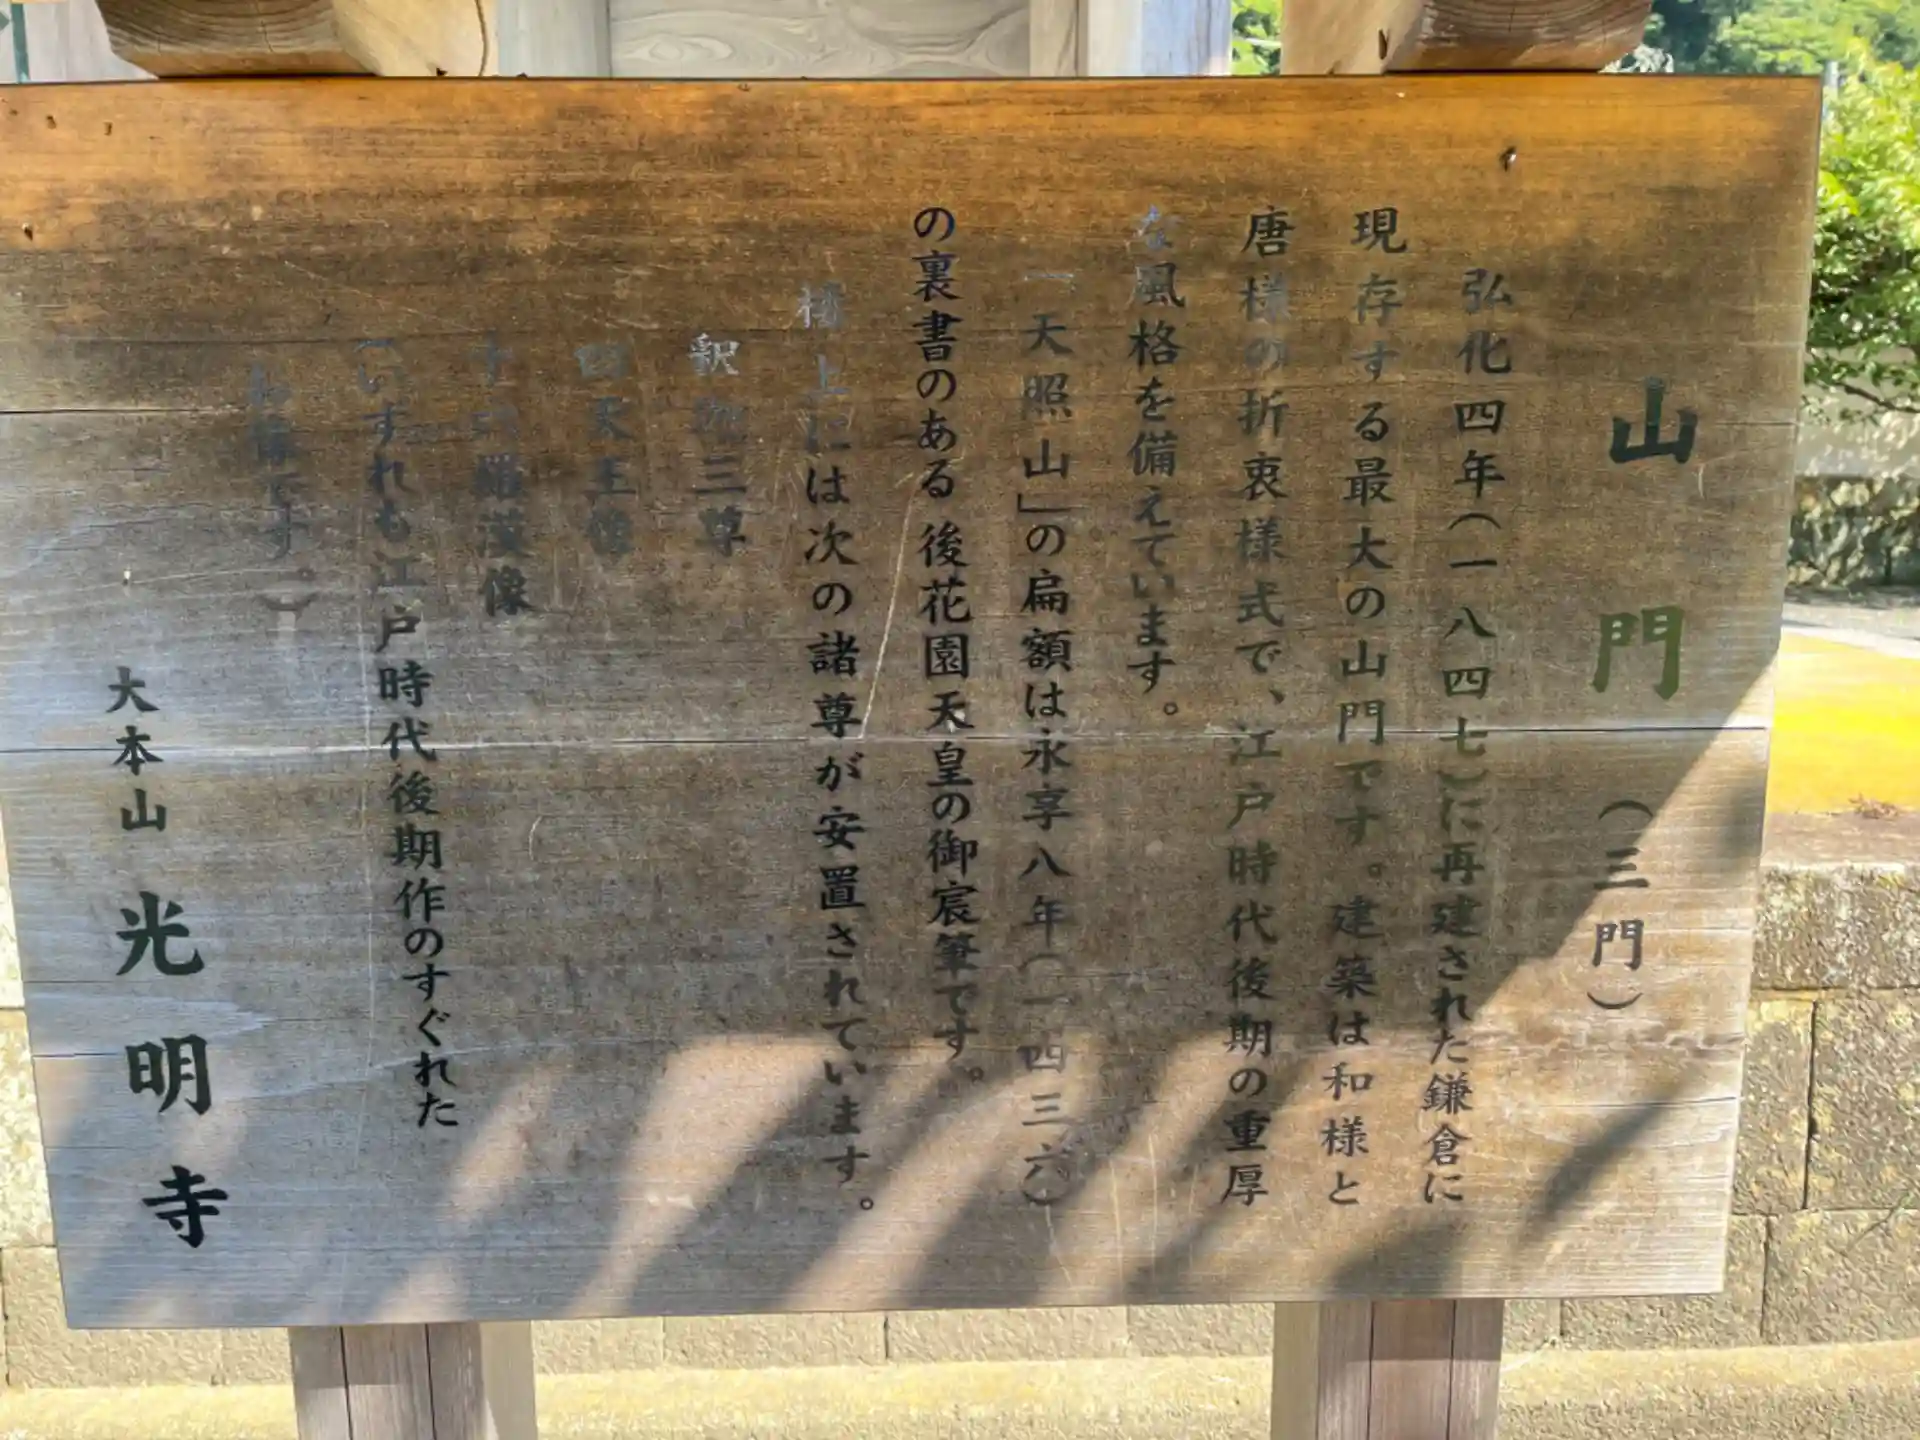 山門（三門）
弘化四年（一八四七）に再建された鎌倉に
現存する最大の山門です。建築は和様と
唐様の折衷様式で、江戸時代後期の重厚
な風格を備えています。
「天照山」の扁額は永享八年（一四三六）
の裏書のある後花園天皇の御宸筆です。
楼上には次の諸尊が安置されています。
釈迦三尊
四天王像
十六羅漢像
（いずれも江戸時代後期作のすぐれた
お像です。）
大本山 光明寺